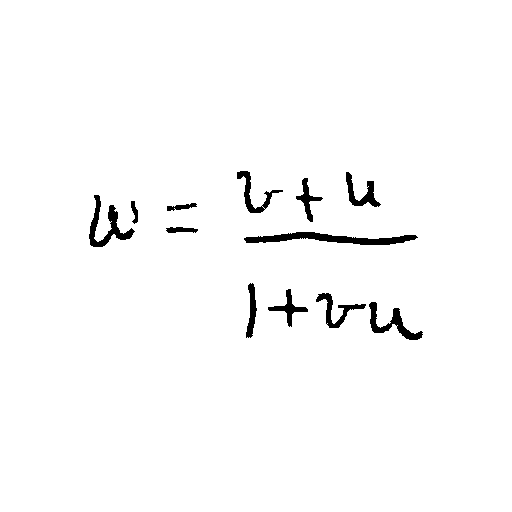 w = \frac{v+u}{1+vu}